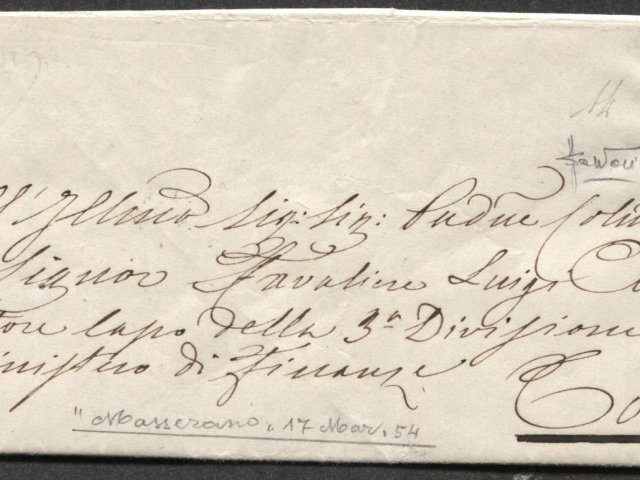 14
ll' Illmo Sig: Sig: Padne Col
Signor Cavaliere Luigi C
tore capo della 3a Divisione
inistero di Finanze
To
"Masserano" 17 Mar. 54